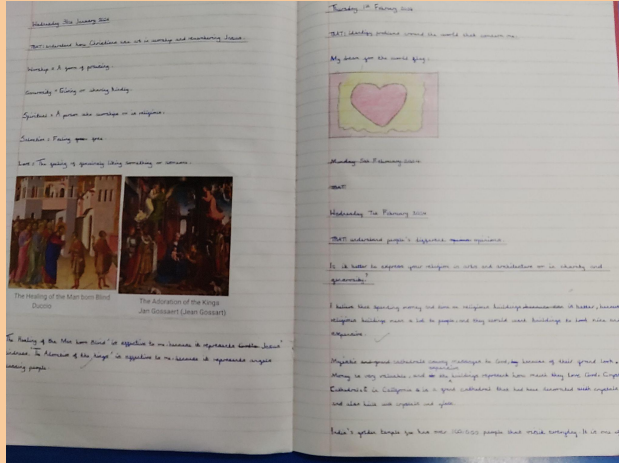 Wednesday 31st January 2024
TBAT: understand how Christians use art in worship and remembering Jesus.
Worship = A form of praising.
Generosity = Giving or sharing kindly.
Spiritual = A person who worships or is religious.
Salvation = Feeling free.
Love = The feeling of genuinely liking something or someone.
The Healing of the Man born Blind
Duccio
The Adoration of the Kings
Jan Gossaert (Jean Gossart)
The Healing of the Man born Blind" is effective to me because it represents Jesus'
kindness. The Adoration of the Kings" is effective to me because it represents angels
leading people.
Thursday 1st February 2024
TBAT: identify problems around the world that concern me.
My dream for the world flag.
Monday 5th February 2024
TBAT:
Wednesday 7th February 2024
TBAT: understand people's different opinions.
Is it better to express your religion in arts and architecture or in charity and
generosity?
I believe that spending money and love on religious buildings is better, because
religious buildings mean a lot to people and they would want buildings to look nice and
expensive.
Majestic and grand cathedrals convey messages to God, because of their grand look.
Money is very valuable, and expensive buildings represent how much they love God. Crystal
Cathedral in California is a grand cathedral that has been decorated with crystals
and also built with crystals and glass.
India's golden temple has over 100,000 people that visit everyday. It is one of